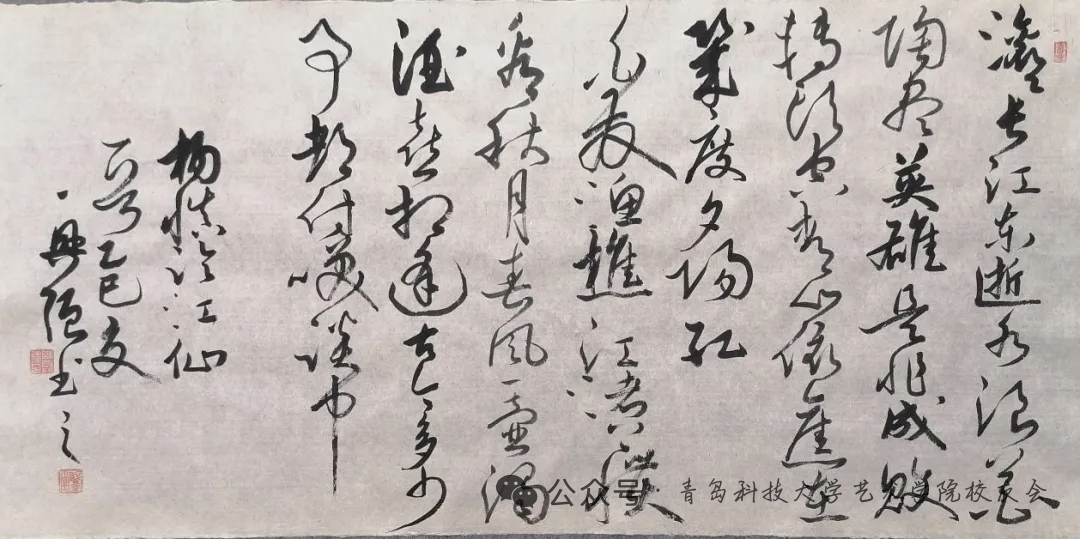 滚滚長江东逝水浪花
淘尽英雄是非成敗
轉头空青山依舊在
幾度夕陽红
白发漁樵江渚上惯
看秋月春風一壶濁
酒喜相逢古今多少
事都付笑谈中
楊慎临江仙
一首乙巳夏
书之
公众号 · 青岛科技大学艺术学院校友会